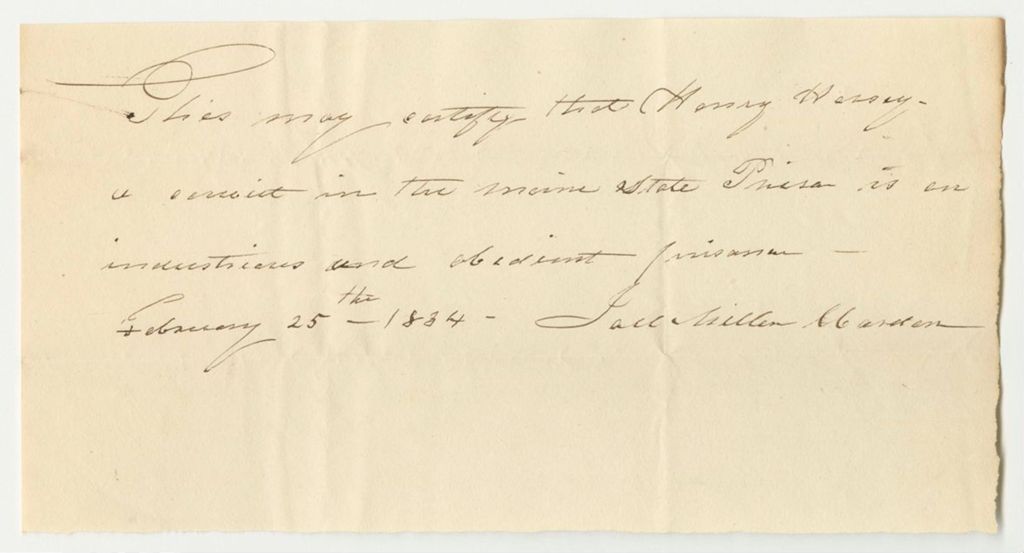 This may certify that Henry Hersey -
a convict in the maine State Prison is an
industrious and obedient prisoner -
February 25the - 1834 - Joel Miller Warden